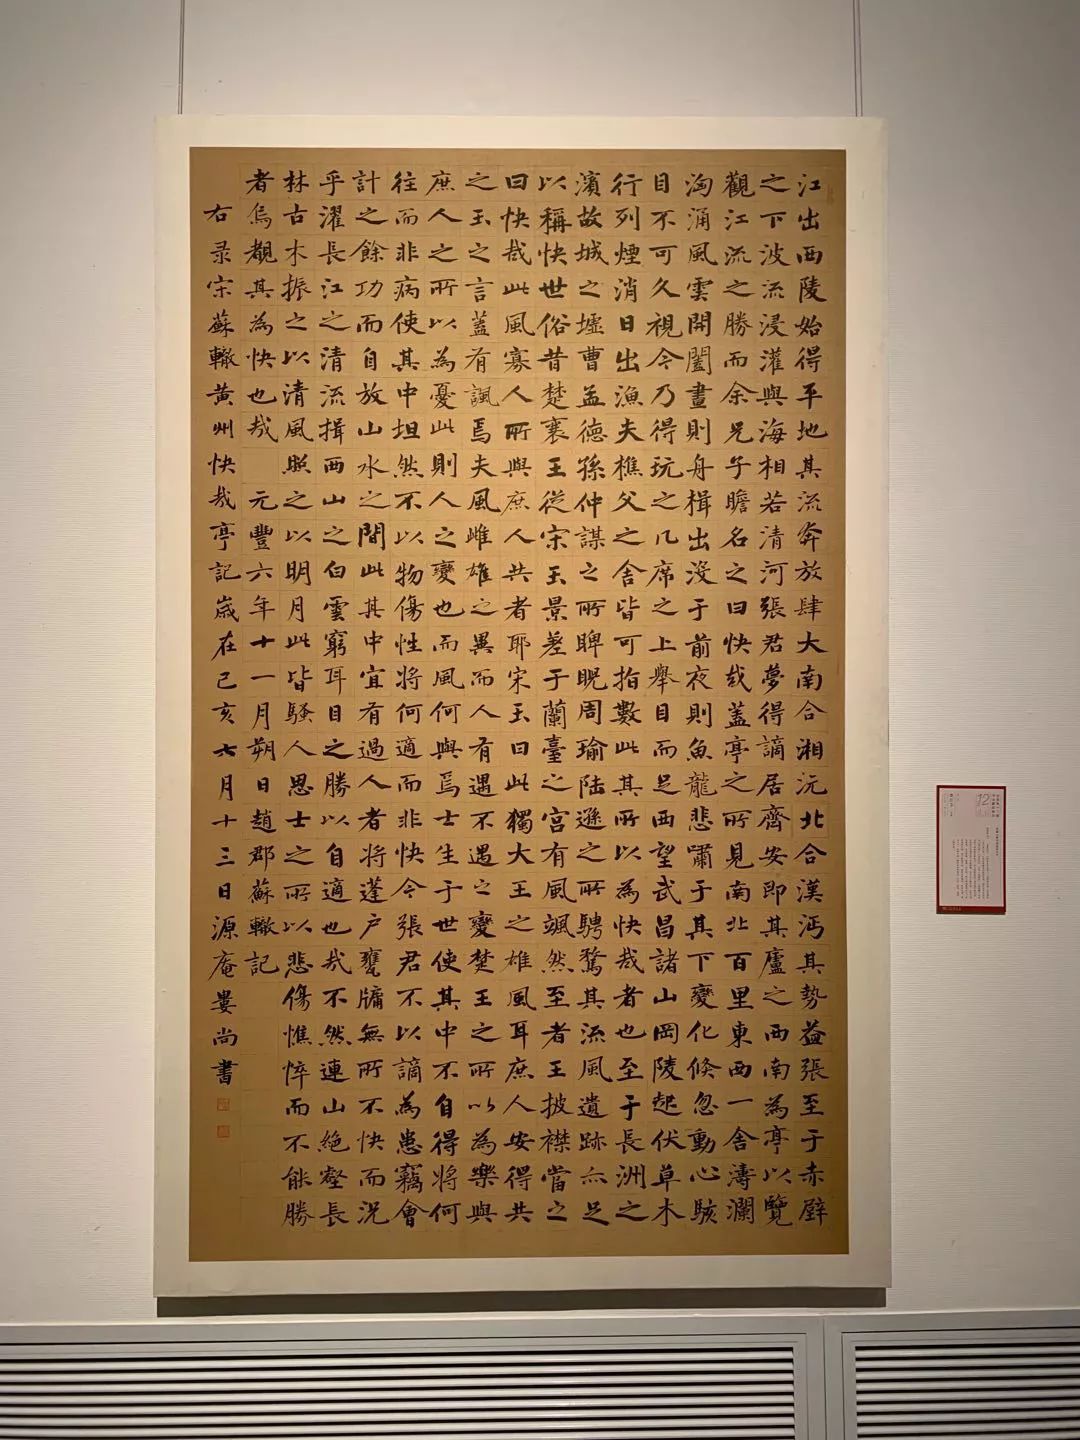 江出西陵始得平地其流奔放肆大南合湘沅北合漢沔其勢益張至于赤壁
之下波流浸灌與海相若清河張君夢得謫居齊安即其廬之西南為亭以覽
觀江流之勝而余兄子瞻名之曰快哉蓋亭之所見南北百里東西一舍濤瀾
洶涌風雲開闔晝則舟楫出沒于前夜則魚龍悲嘯于其下變化倏忽動心駭
目不可久視今乃得玩之几席之上舉目而足西望武昌諸山岡陵起伏草木
行列煙消日出漁夫樵父之舍皆可指數此其所以為快哉者也至于長洲之
濱故城之墟曹孟德孫仲謀之所睥睨周瑜陸遜之所騁騖其流風遺跡亦足
以稱快世俗昔楚襄王從宋玉景差于蘭臺之宮有風颯然至者王披襟當之
曰快哉此風寡人所與庶人共者耶宋玉曰此獨大王之雄風耳庶人安得共
之玉之言蓋有諷焉夫風雌雄之異而人有遇不遇之變楚王之所以為樂與
庶人之所以為憂此則人之變也而風何與焉士生于世使其中不自得將何
往而非病使其中坦然不以物傷性將何適而非快今張君不以謫為患竊會
計之餘功而自放山水之間此其中宜有過人者將蓬戶甕牖無所不快而況
乎濯長江之清流揖西山之白雲窮耳目之勝以自適也哉不然連山絕壑長
林古木振之以清風照之以明月此皆騷人思士之所以悲傷憔悴而不能勝
者烏覩其為快也哉 元豐六年十一月朔日趙郡蘇轍記
右录宋蘇轍黃州快哉亭記歲在己亥七月十三日源庵婁尚書
12